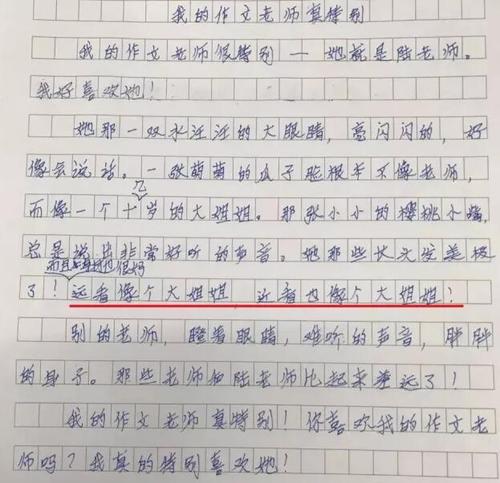 我的作文老师真特别
我的作文老师很特别——她就是陆老师。
我好喜欢她！
她那一双水汪汪的大眼睛，亮闪闪的，好
像会说话。一张萌萌的瓜子脸根本不像老师，
几
而像一个十岁的大姐姐。那张小小的樱桃小嘴，
总是说出非常好听的声音。她那些头发美极
而且身材也很好
了！远看像个大姐姐，近看也像个大姐姐！
别的老师，瞪着眼睛，难听的声音，胖胖
的身子。那些老师和陆老师比起来差远了！
我的作文老师真特别！你喜欢我的作文老
师吗？我真的特别喜欢她！